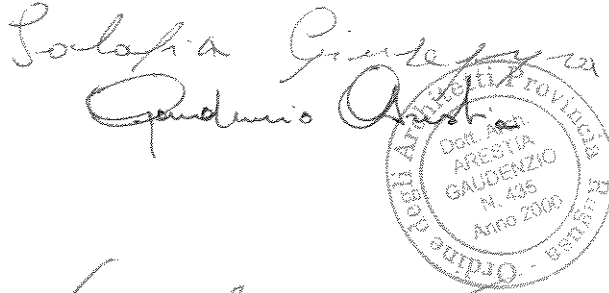 Salafia Giuseppa
Gaudenzio Arestia
Ordine degli Architetti Provincia Ragusa
Dott. Arch.
ARESTIA
GAUDENZIO
N. 435
Anno 2000